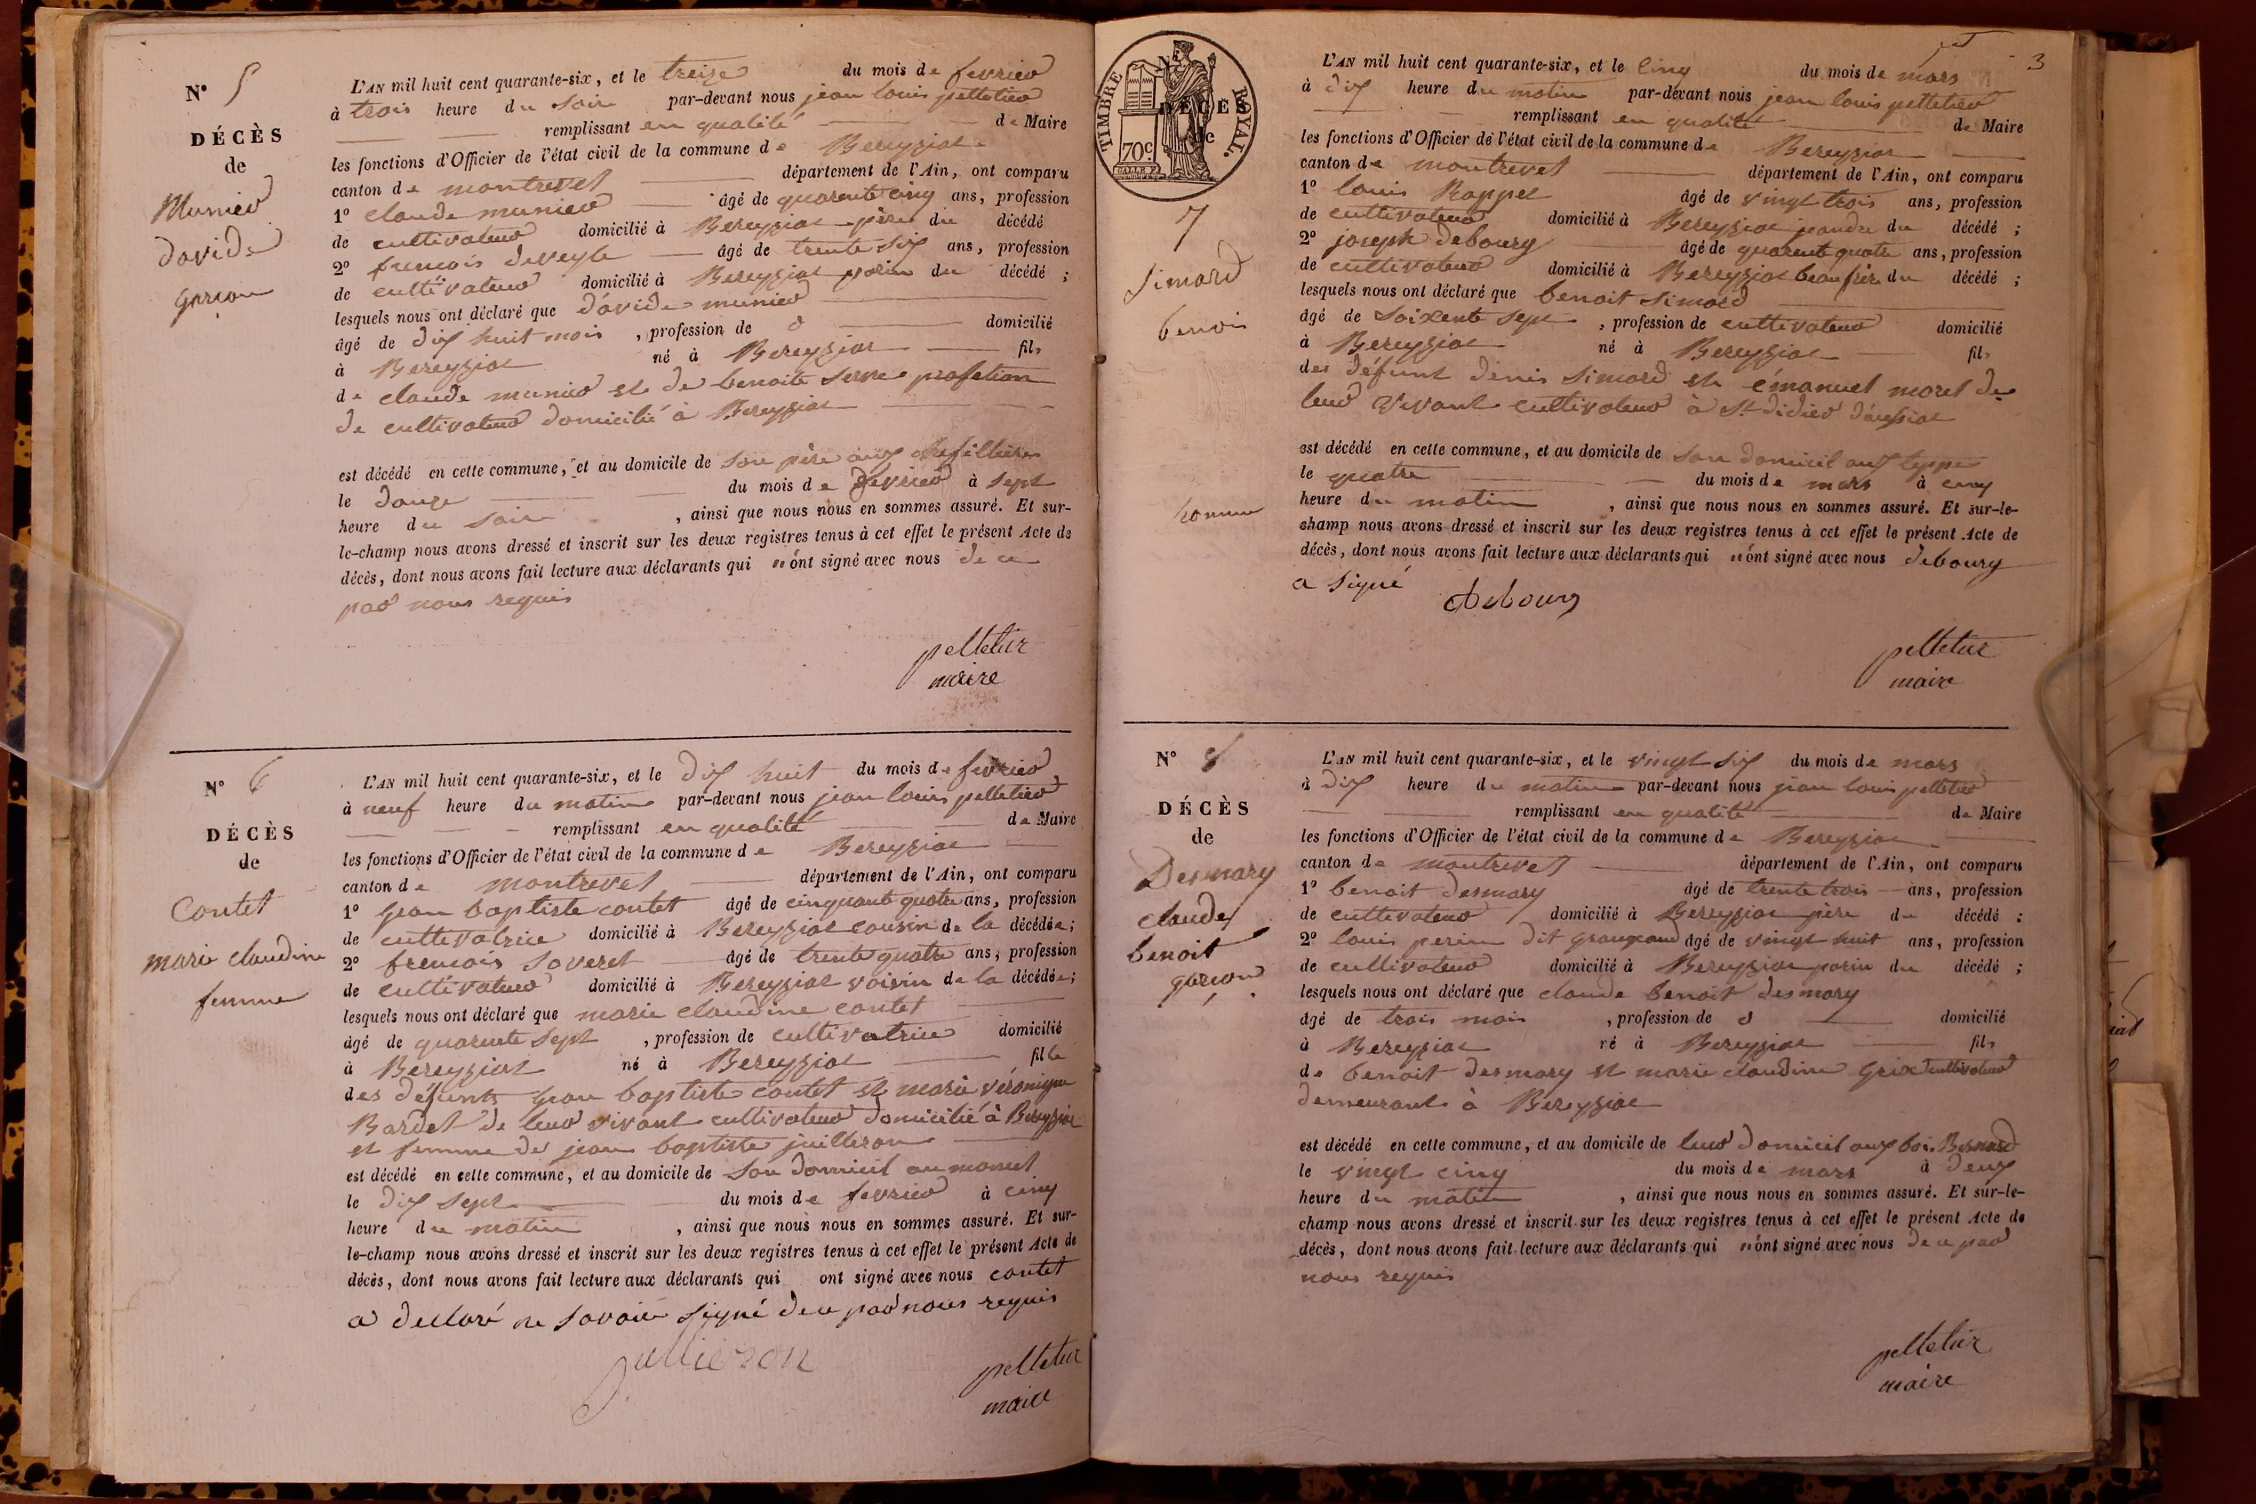 N° 5
DÉCÈS
de
Munier
davide
garcon
L'AN mil huit cent quarante-six, et le treize du mois de fevrier
à trois heure du soir par-devant nous jean louis pelletier
remplissant en qualité de Maire
les fonctions d'Officier de l'état civil de la commune de Bereyziat
canton de montrevel département de l'Ain, ont comparu
1° claude munier âgé de quarente cinq ans, profession
de cultivateur domicilié à Bereyziat père du décédé
2° francois deveyle âgé de trente six ans, profession
de cultivateur domicilié à Bereyziat parin du décédé ;
lesquels nous ont déclaré que davide munier
âgé de dix huit mois , profession de 0 domicilié
à Bereyziat né à Bereyziat fils
de claude munier et de benoite serve profetion
de cultivateur domicilié à Bereyziat
est décédé en cette commune, et au domicile de son père aux
le douze du mois de fevrier à sept
heure du soir , ainsi que nous nous en sommes assuré. Et sur-
le-champ nous avons dressé et inscrit sur les deux registres tenus à cet effet le présent Acte de
décès, dont nous avons fait lecture aux déclarants qui n'ont signé avec nous de ce
par nous requis
pelletier
maire
N° 6
DÉCÈS
de
Contet
marie claudine
femme
L'AN mil huit cent quarante-six, et le dix huit du mois de fevrier
à neuf heure du matin par-devant nous jean louis pelletier
remplissant en qualité de Maire
les fonctions d'Officier de l'état civil de la commune de Bereyziat
canton de montrevel département de l'Ain, ont comparu
1° jean baptiste contet âgé de cinquante quatre ans, profession
de cultivatrice domicilié à Bereyziat cousin de la décédée;
2° francois saveret âgé de trente quatre ans, profession
de cultivateur domicilié à Bereyziat voisin de la décédée;
lesquels nous ont déclaré que marie claudine contet
âgé de quarente sept , profession de cultivatrice domicilié
à Bereyziat né à Bereyziat fille
des défunts jean baptiste contet et marie véronique
Bardet de leur vivant cultivateur domicilié à Bereyziat
et femme de jean baptiste juilleron
est décédé en cette commune, et au domicile de son domicil au
le dix sept du mois de fevrier à cinq
heure du matin , ainsi que nous nous en sommes assuré. Et sur-
le-champ nous avons dressé et inscrit sur les deux registres tenus à cet effet le présent Acte de
décès, dont nous avons fait lecture aux déclarants qui ont signé avec nous contet
a declaré ne savoir signé de ce par nous requis
pelletier
maire
3
TIMBRE ROYAL.
70 c.
DÉCÈS
de
7
Simard
benoi
homme
L'AN mil huit cent quarante-six, et le cinq du mois de mars
à dix heure du matin par-devant nous jean louis pelletier
remplissant en qualité de Maire
les fonctions d'Officier de l'état civil de la commune de Bereyziat
canton de montrevel département de l'Ain, ont comparu
1° louis Rappet âgé de vingt trois ans, profession
de cultivateur domicilié à Bereyziat jeandre du décédé ;
2° joseph debourg âgé de quarente quatre ans, profession
de cultivateur domicilié à Bereyziat beau frère du décédé ;
lesquels nous ont déclaré que benoit simard
âgé de soixente sept , profession de cultivateur domicilié
à Bereyziat né à Bereyziat fils
des défunt denis simard et émanuel morel de
leur vivant cultivateur à St didier d'aussiat
est décédé en cette commune, et au domicile de son domicil aux
le quatre du mois de mars à cinq
heure du matin , ainsi que nous nous en sommes assuré. Et sur-le-
champ nous avons dressé et inscrit sur les deux registres tenus à cet effet le présent Acte de
décès, dont nous avons fait lecture aux déclarants qui n'ont signé avec nous debourg
a signé
Debourg
pelletier
maire
N° 8
DÉCÈS
de
Desmary
claude
benoit
garcon
L'AN mil huit cent quarante-six, et le vingt six du mois de mars
à dix heure du matin par-devant nous jean louis pelletier
remplissant en qualité de Maire
les fonctions d'Officier de l'état civil de la commune de Bereyziat
canton de montrevel département de l'Ain, ont comparu
1° benoit desmary âgé de trente trois ans, profession
de cultivateur domicilié à Bereyziat père du décédé ;
2° louis perin dit âgé de vingt huit ans, profession
de cultivateur domicilié à Bereyziat parin du décédé ;
lesquels nous ont déclaré que claude benoit desmary
âgé de trois mois , profession de 0 domicilié
à Bereyziat né à Bereyziat fils
de benoit desmary et marie claudine cultivateur
demeurant à Bereyziat
est décédé en cette commune, et au domicile de leur domicil aux bois Bernard
le vingt cinq du mois de mars à deux
heure du matin , ainsi que nous nous en sommes assuré. Et sur-le-
champ nous avons dressé et inscrit sur les deux registres tenus à cet effet le présent Acte de
décès, dont nous avons fait lecture aux déclarants qui n'ont signé avec nous de ce par
nous requis
pelletier
maire